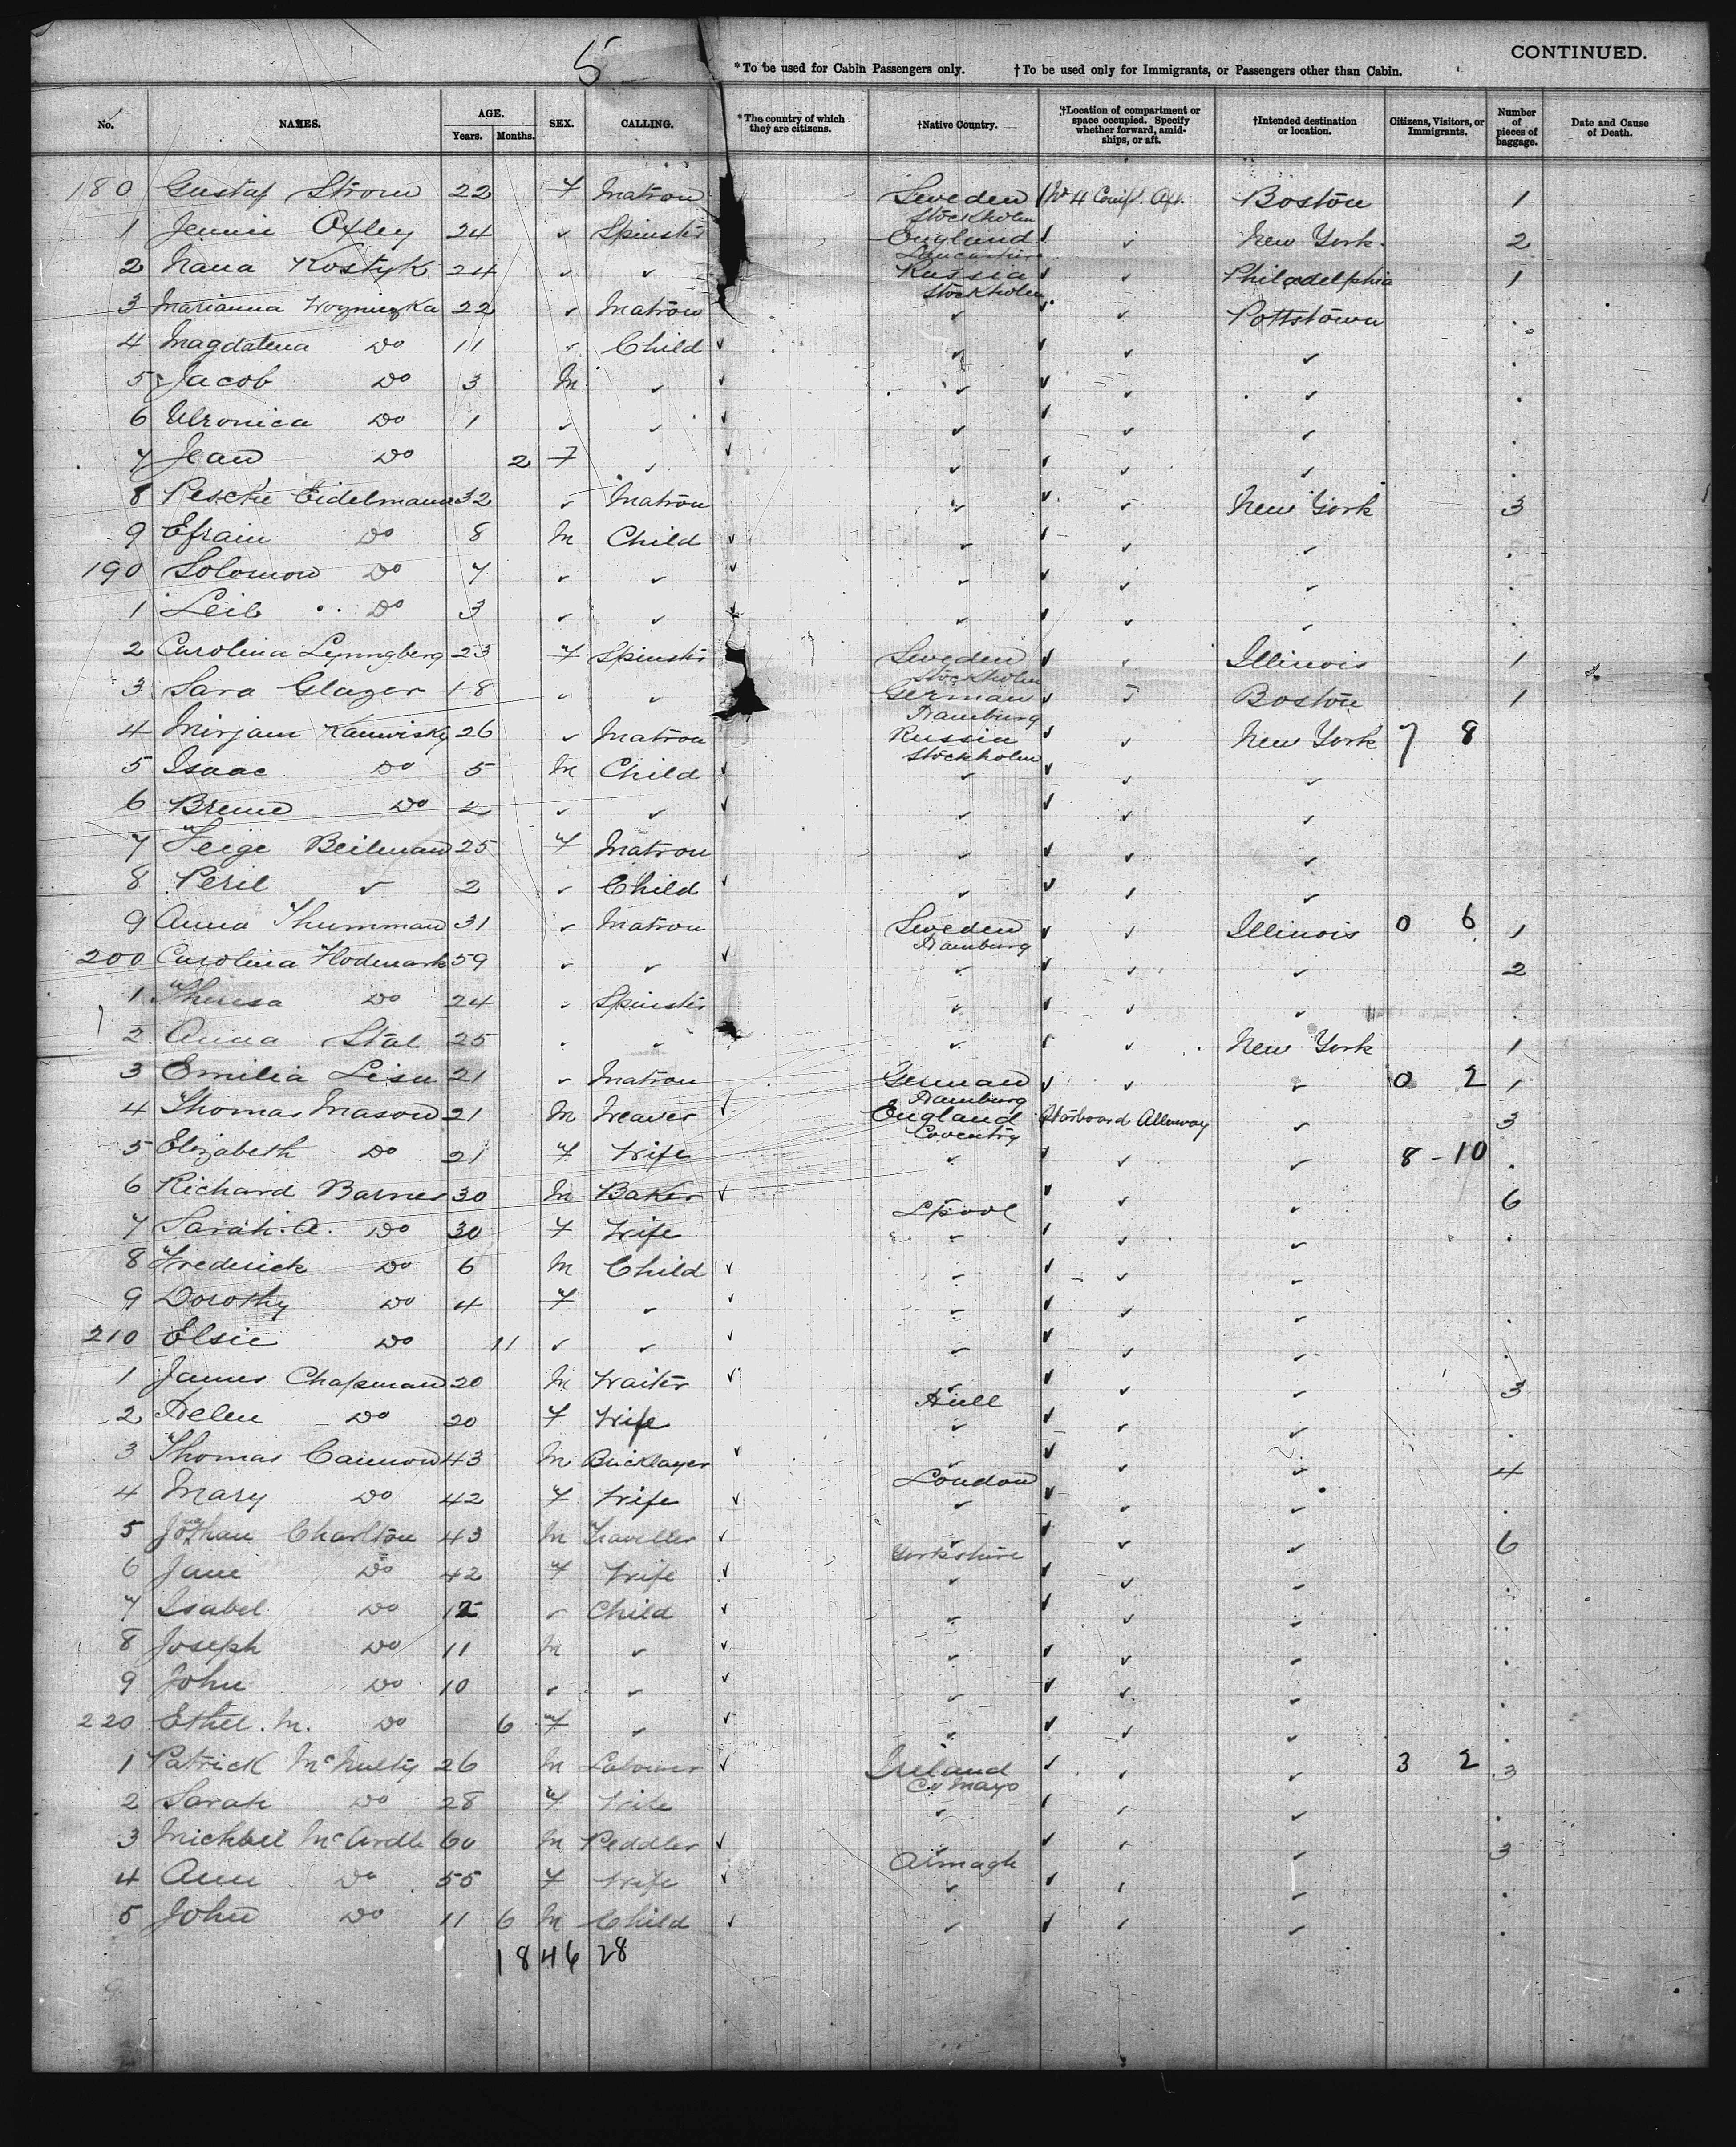 5
CONTINUED.
*To be used for Cabin Passengers only. †To be used only for Immigrants, or Passengers other than Cabin.
No. NAMES. AGE. Years. Months. SEX. CALLING. *The country of which they are citizens. †Native Country. †Location of compartment or space occupied. Specify whether forward, amidships, or aft. †Intended destination or location. Citizens, Visitors, or Immigrants. Number of pieces of baggage. Date and Cause of Death.
180 Gustaf Strom 22 F Matron Sweden Stockholm No 4 Compt. Aft. Boston 1
1 Jennie Oxley 24 ✓ Spinster England Lancashire ✓ ✓ New York 2
2 Nana Kostyk 24 ✓ ✓ Russia Stockholm ✓ ✓ Philadelphia 1
3 Marianna 22 ✓ Matron ✓ ✓ ✓ Pottstown .
4 Magdalena Do 11 ✓ Child ✓ ✓ ✓ ✓ ✓ .
5 Jacob Do 3 M ✓ ✓ ✓ ✓ ✓ ✓ .
6 Do 1 ✓ ✓ ✓ ✓ ✓ ✓ ✓ .
7 Jean Do 2 F ✓ ✓ ✓ ✓ ✓ ✓ .
8 Eidelmann 32 ✓ Matron ✓ ✓ ✓ New York 3
9 Efraim Do 8 M Child ✓ ✓ ✓ ✓ ✓ .
190 Solomon Do 7 ✓ ✓ ✓ ✓ ✓ ✓ ✓ .
1 Leib Do 3 ✓ ✓ ✓ ✓ ✓ ✓ ✓ .
2 Carolina Lynngberg 23 F Spinster Sweden Stockholm ✓ ✓ Illinois 1
3 Sara Glazer 18 ✓ ✓ German Hamburg ✓ ✓ Boston 1
4 Mirjam Kamvisky 26 ✓ Matron Russia Stockholm ✓ ✓ New York 7 8
5 Isaac Do 5 M Child ✓ ✓ ✓ ✓ ✓
6 Do 2 ✓ ✓ ✓ ✓ ✓ ✓ ✓
7 Feige Beilman 25 F Matron ✓ ✓ ✓ ✓
8 Peril ✓ 2 ✓ Child ✓ ✓ ✓ ✓ ✓
9 Anna Thumman 31 ✓ Matron Sweden Hamburg ✓ ✓ Illinois 0 6 1
200 Carolina Flodmark 59 ✓ ✓ ✓ ✓ ✓ ✓ ✓ 2
1 Theresa Do 24 ✓ Spinster ✓ ✓ ✓ ✓ .
2 Anna Stal 25 ✓ ✓ ✓ ✓ ✓ New York 1
3 Emilia Lisu 21 ✓ Matron German Hamburg ✓ ✓ ✓ 0 2 1
4 Thomas Mason 21 M Weaver ✓ England Coventry Starboard Alleyway ✓ 3
5 Elizabeth Do 21 F Wife ✓ ✓ ✓ ✓ 8 - 10 .
6 Richard Barnes 30 M Baker ✓ L'pool ✓ ✓ ✓ 6
7 Sarah. A. Do 30 F Wife ✓ ✓ ✓ ✓ .
8 Frederick Do 6 M Child ✓ ✓ ✓ ✓ ✓
9 Dorothy Do 4 F ✓ ✓ ✓ ✓ ✓ ✓ .
210 Elsie Do 11 ✓ ✓ ✓ ✓ ✓ ✓ ✓ .
1 James Chapman 20 M Waiter ✓ Hull ✓ ✓ ✓ 3
2 Helen Do 20 F Wife ✓ ✓ ✓ ✓ .
3 Thomas Cannon 43 M Bricklayer ✓ London ✓ ✓ ✓ 4
4 Mary Do 42 F Wife ✓ ✓ ✓ ✓ ✓ .
5 Charlton 43 M Traveller ✓ Yorkshire ✓ ✓ ✓ 6
6 Jane Do 42 F Wife ✓ ✓ ✓ ✓ ✓ .
7 Isabel Do 12 ✓ Child ✓ ✓ ✓ ✓ ✓ .
8 Joseph Do 11 M ✓ ✓ ✓ ✓ ✓ ✓ .
9 John Do 10 ✓ ✓ ✓ ✓ ✓ ✓ ✓ .
220 Ethel. M. Do 6 F ✓ ✓ ✓ ✓ ✓ ✓ .
1 Patrick McNulty 26 M Labourer ✓ Ireland Co Mayo ✓ ✓ ✓ 3 2 3
2 Sarah Do 28 F Wife ✓ ✓ ✓ ✓ .
3 Michael McArdle 60 M Peddler ✓ Armagh ✓ ✓ ✓ 3
4 Ann Do 55 F Wife ✓ ✓ ✓ ✓ ✓ .
5 John Do 11 6 M Child ✓ ✓ ✓ ✓ ✓ .
18 46 28